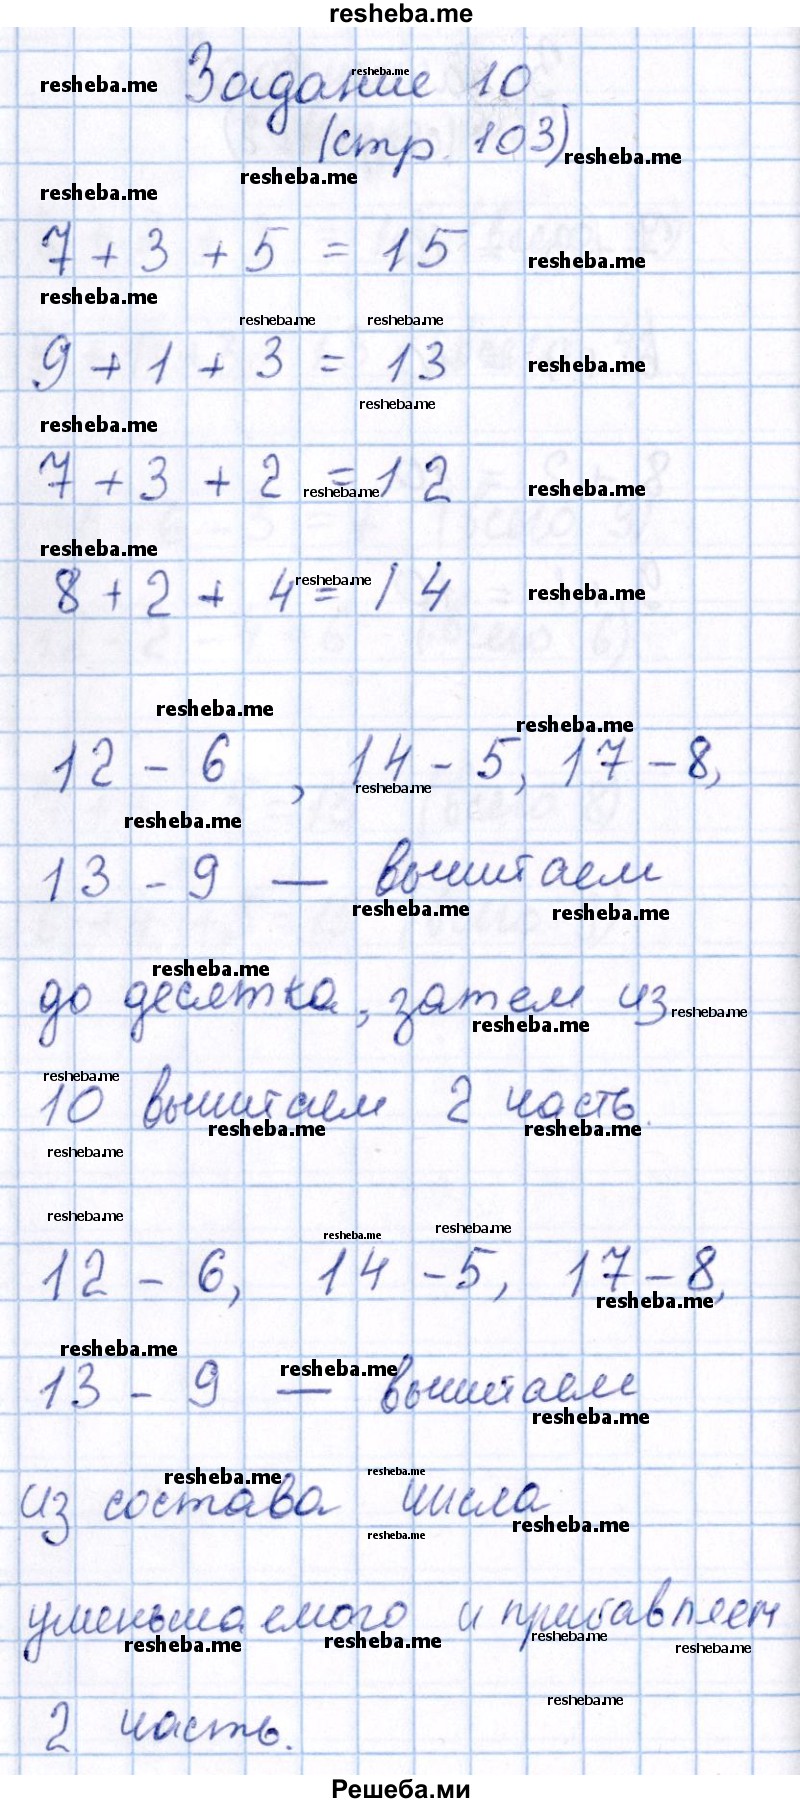 resheba.me
Задание 10
(стр. 103)
7 + 3 + 5 = 15
9 + 1 + 3 = 13
7 + 3 + 2 = 12
8 + 2 + 4 = 14
12 - 6 , 14 - 5, 17 - 8,
13 - 9 — вычитаем
до десятка, затем из
10 вычитаем 2 часть.
12 - 6, 14 - 5, 17 - 8,
13 - 9 — вычитаем
из состава числа
уменьшаемого и прибавляем
2 часть.
Решеба.ми